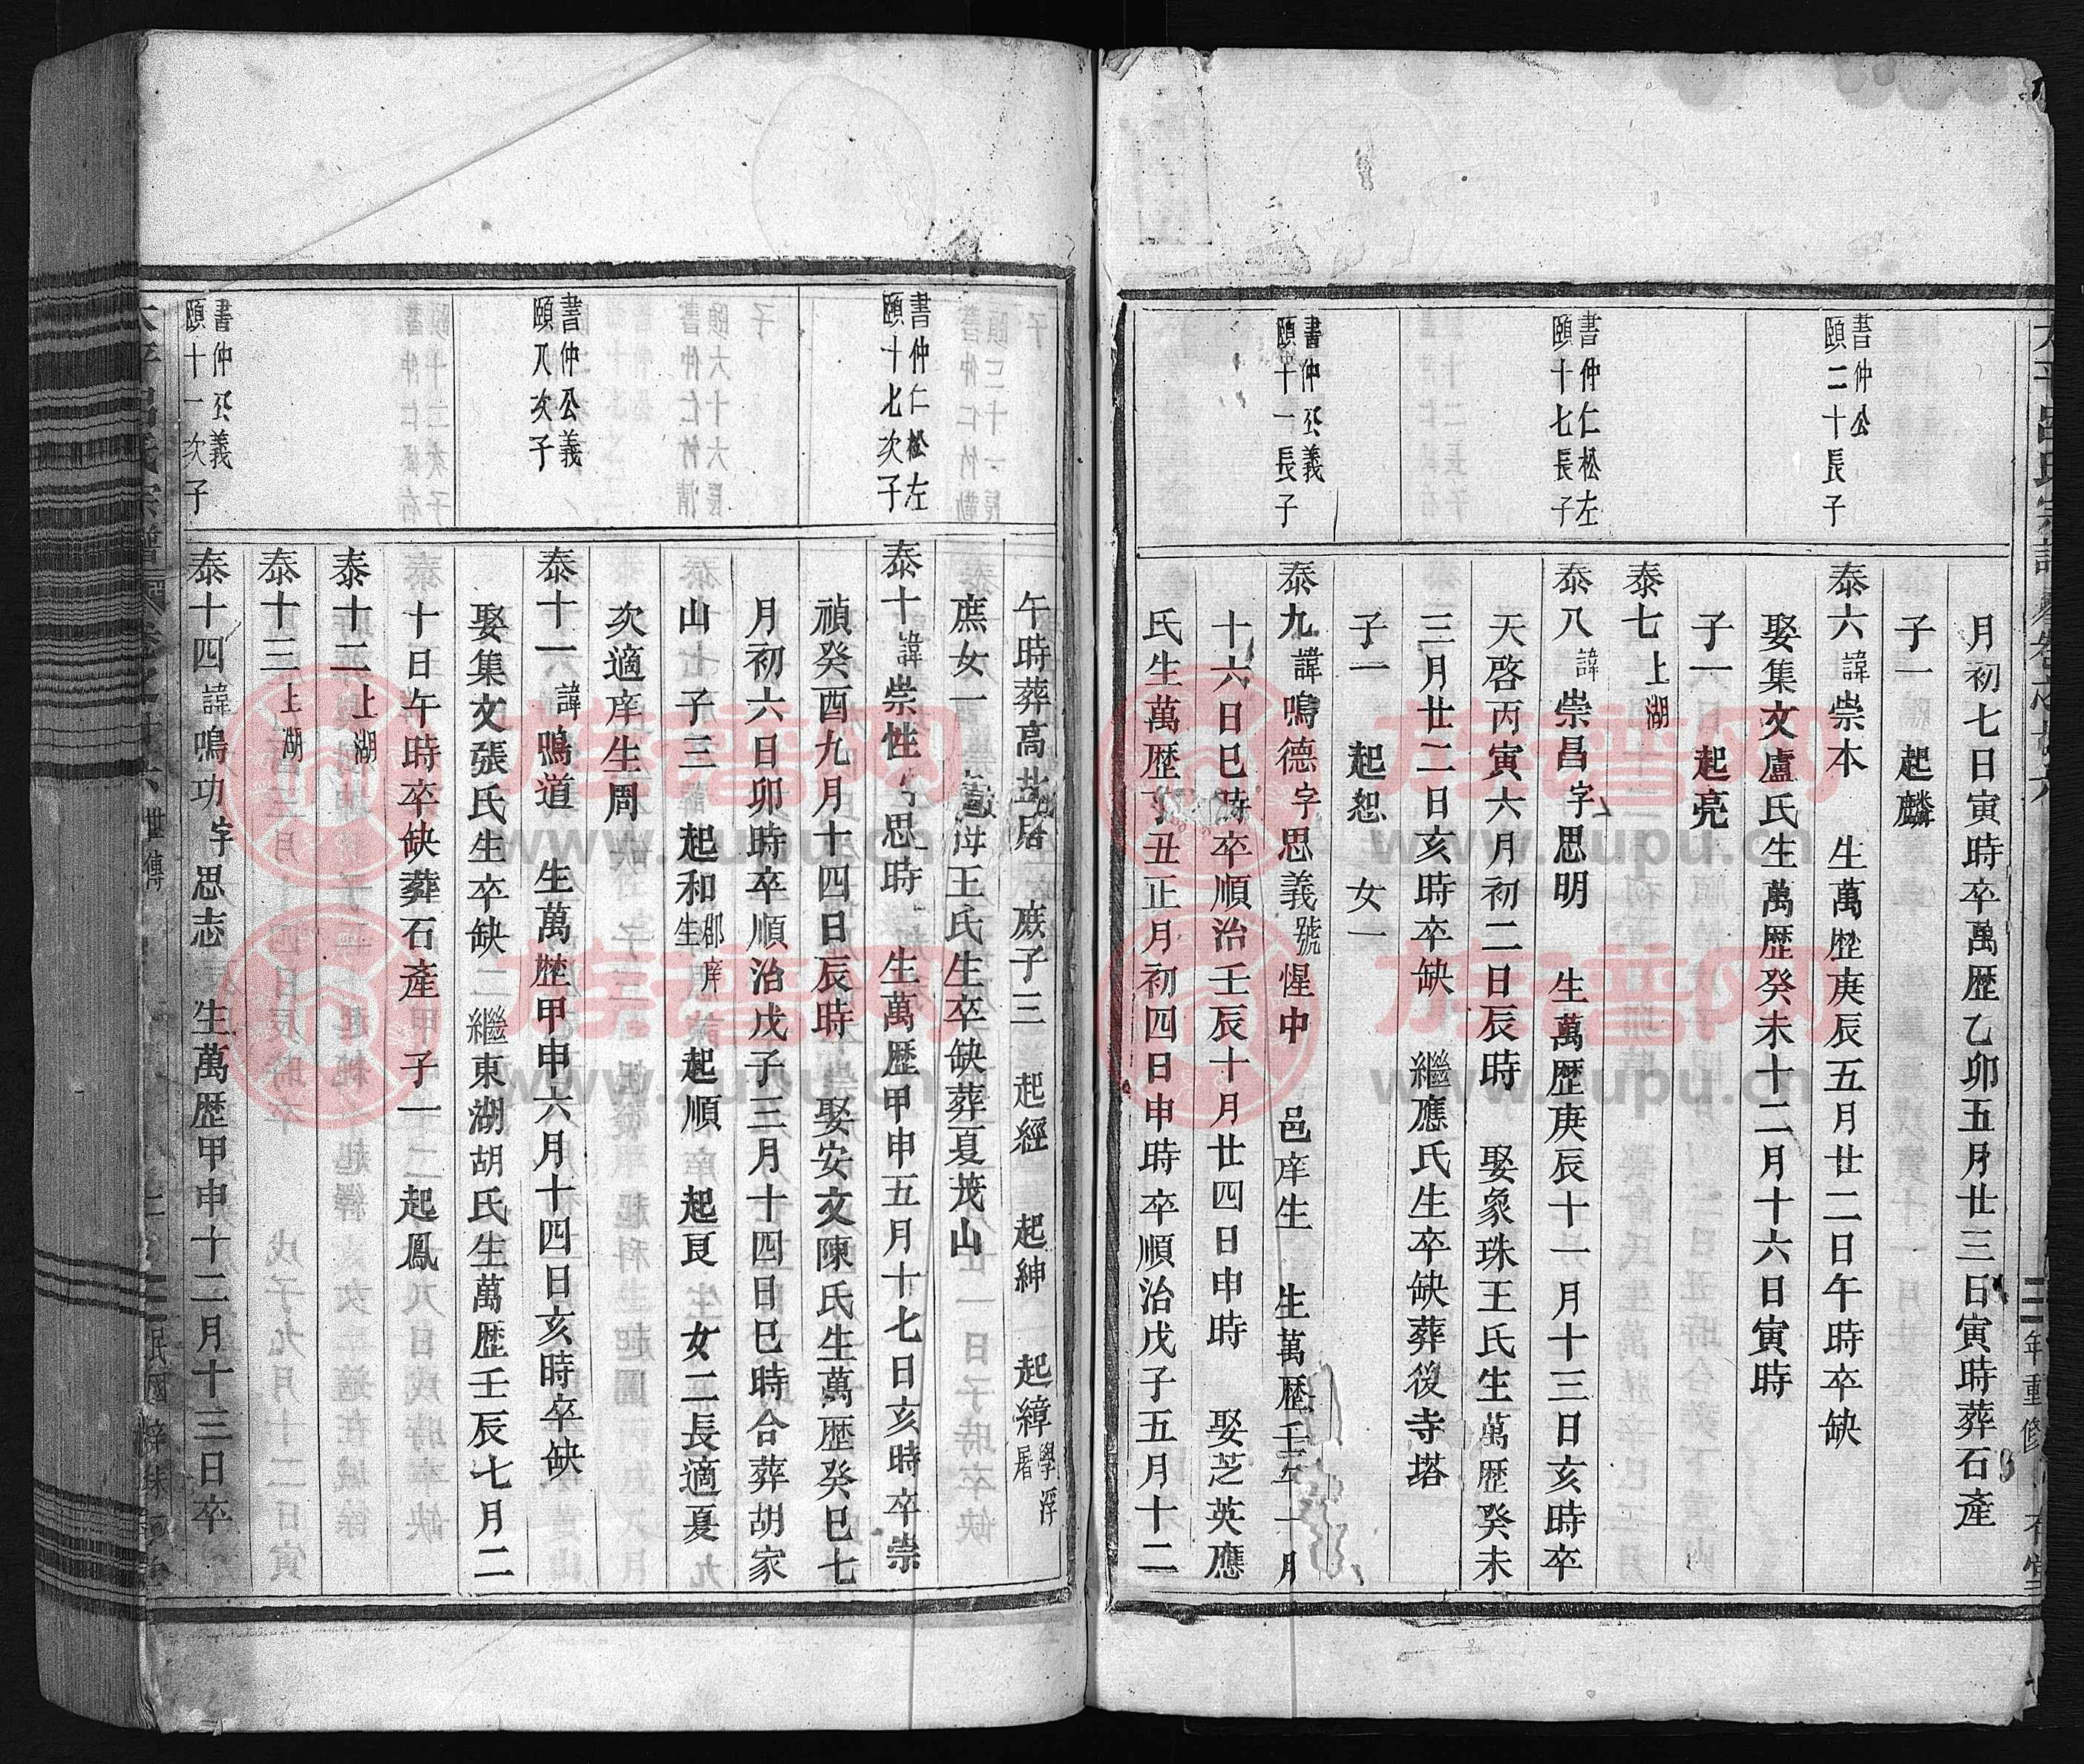 月初七日寅時卒萬歷乙卯五月廿三日寅時葬石產
子一 起麟
書仲公
頤二十長子
泰六諱崇本 生萬歷庚辰五月廿二日午時卒缺
娶集文盧氏生萬歷癸未十二月十六日寅時
子一 起亮
泰七上湖
書仲仁松左
頤十七長子
泰八諱崇昌字思明 生萬歷庚辰十一月十三日亥時卒
天啓丙寅六月初二日辰時 娶象珠王氏生萬歷癸未
三月廿二日亥時卒缺 繼應氏生卒缺葬後寺塔
子一 起恕 女一
書仲公義
頤十一長子
泰九諱鳴德字思義號惺中 邑庠生 生萬歷壬午一月
十六日巳時卒順治壬辰十月廿四日申時 娶芝英應
氏生萬歷丁丑正月初四日申時卒順治戊子五月十二
午時葬高 庶子三 起經 起紳 起緯學浮屠
庶女一 王氏生卒缺葬夏茂山
書仲仁松左
頤十七次子
泰十諱崇性字思時 生萬歷甲申五月十七日亥時卒崇
禎癸酉九月十四日辰時 娶安文陳氏生萬歷癸巳七
月初六日卯時卒順治戊子三月十四日巳時合葬胡家
山 子三 起和郡庠生 起順 起艮 女二長適夏
次適庠生周
書仲公義
頤八次子
泰十一諱鳴道 生萬歷甲申六月十四日亥時卒缺
娶集文張氏生卒缺 繼東湖胡氏生萬歷壬辰七月二
十日午時卒缺葬石產 子一 起鳳
泰十二上湖
泰十三上湖
書仲公義
頤十一次子
泰十四諱鳴功字思志 生萬歷甲申十二月十三日卒